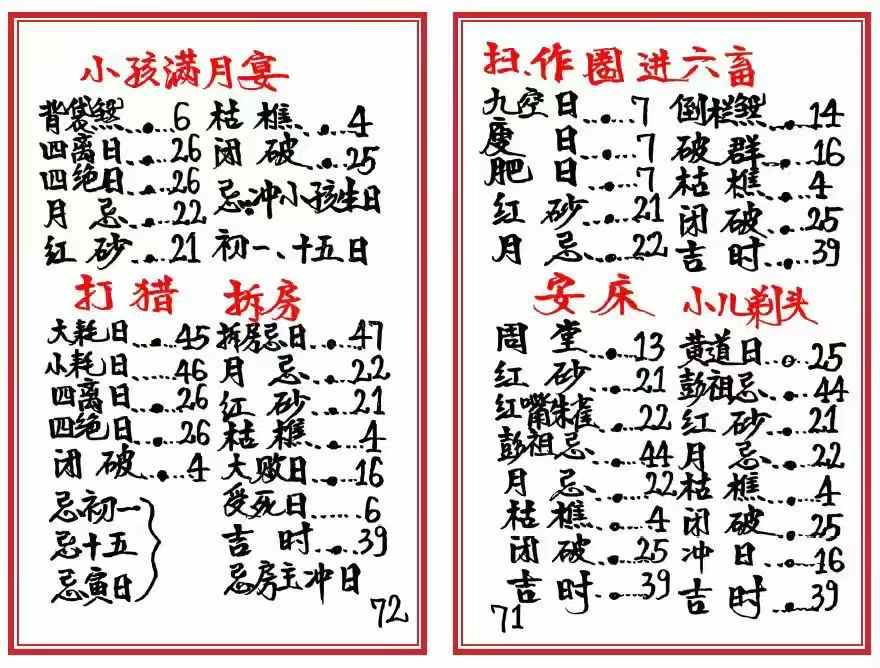 小孩满月宴
背袋煞……6
四离日……26
四绝日……26
月忌……22
红砂……21
枯樵……4
闭破……25
忌:冲小孩生日
初一、十五日
打猎
大耗日……45
小耗日……46
四离日……26
四绝日……26
闭破……4
忌初一
忌十五
忌寅日
拆房
拆房忌日……47
月忌……22
红砂……21
枯樵……4
大败日……16
受死日……6
吉时……39
忌房主冲日
72
扫、作圈进六畜
九空日……7
廋日……7
肥日……7
红砂……21
月忌……22
倒栏煞……14
破群……16
枯樵……4
闭破……25
吉时……39
安床
周堂……13
红砂……21
红嘴朱雀……22
彭祖忌……44
月忌……22
枯樵……4
闭破……25
吉时……39
小儿剃头
黄道日……25
彭祖忌……44
红砂……21
月忌……22
枯樵……4
闭破……25
冲日……16
吉时……39
71